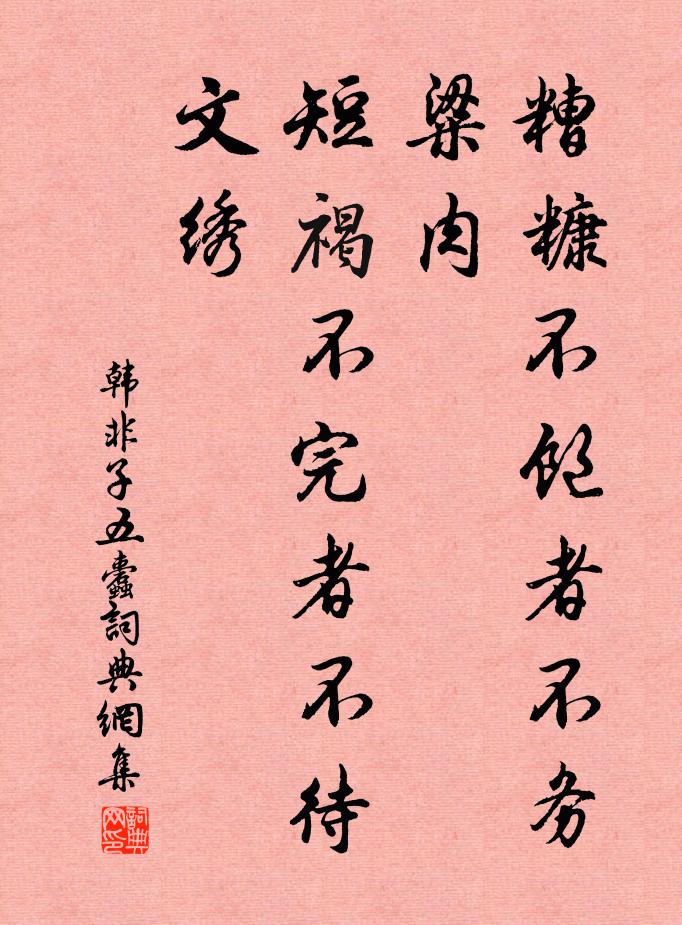 糟糠不饱者不务
粱肉
短褐不完者不待
文绣
韩非子五蠹詞典網集
詞典网印